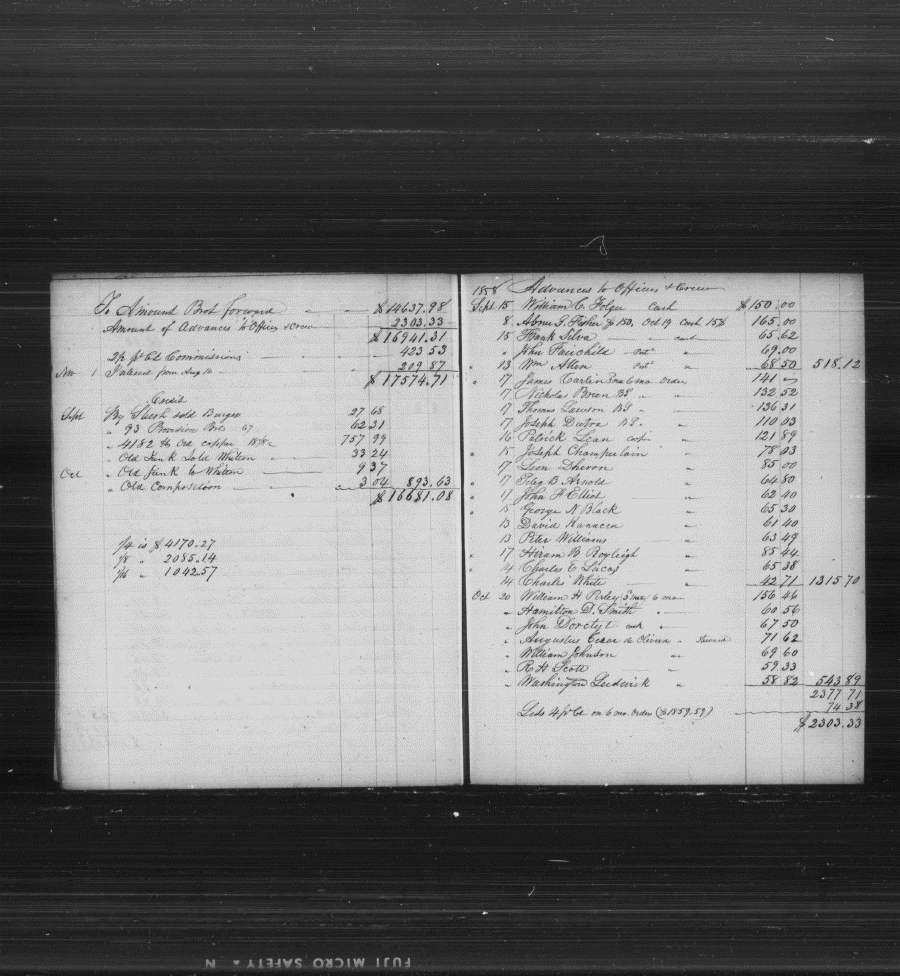 To Amount Brot forward $14637.98
Amount of Advances to Officers & crew 2303.33
$16941.31
2½ pr Ct Commissions 423 53
Nov 1 Interest from Aug 10 209 87
$17574.71
Credit
Sept By Slush sold Burges 27 68
" 93 Bread 62 31
" 4182 lbs Old copper 757 99
" Old Junk Sold Whiton 33 24
Oct " Old Junk to Whiton 9 37
" Old Composition 3 04 893.63
$16681.08
1/4 is $4170.27
1/8 " 2085.14
1/16 " 1042.57
1858 Advances to Officers & Crew
Sept. 15 William C. Folger Cash $150.00
8 Abner P. Fisher 150, Oct 19 cash 15$ 165.00
15 Frank Silva " cash 65.62
" John Fauchild " 69.00
13 Wm Allen " 68 50 518.12
17 James Carlin 6 mo order 141 "
17 Nicholas Breen " 132 52
17 Thomas Lawson " 136 31
17 Joseph " 110 03
16 Patrick Lean " 121 89
15 Joseph Champerlain " 78 03
17 Leon " 85 00
17 B Arnold " 64 80
17 John F Elliot " 62 40
15 George N Black " 65 30
13 David Hannecn " 61 40
13 Peter Williams " 63 49
17 Hiram B Royleigh " 85 44
4 Charles E Lucas " 65 38
14 Charles White " 42 71 1315 70
Oct 20 William H Perley 6 mo 156 46
" Hamilton D. Smith " 60 56
" John Dorctyt cash " 67 50
" Augustus Cesar de Olivera " Steward 71 62
" William Johnson " 69 60
" R. H Scott " 59 33
" Washington Ludwick " 58 82 543 89
2377 71
Less 4 pr Ct on 6 mo. orders ($1859.59) 74.38
$2303.33
FUJI MICRO SAFETY ▲ N